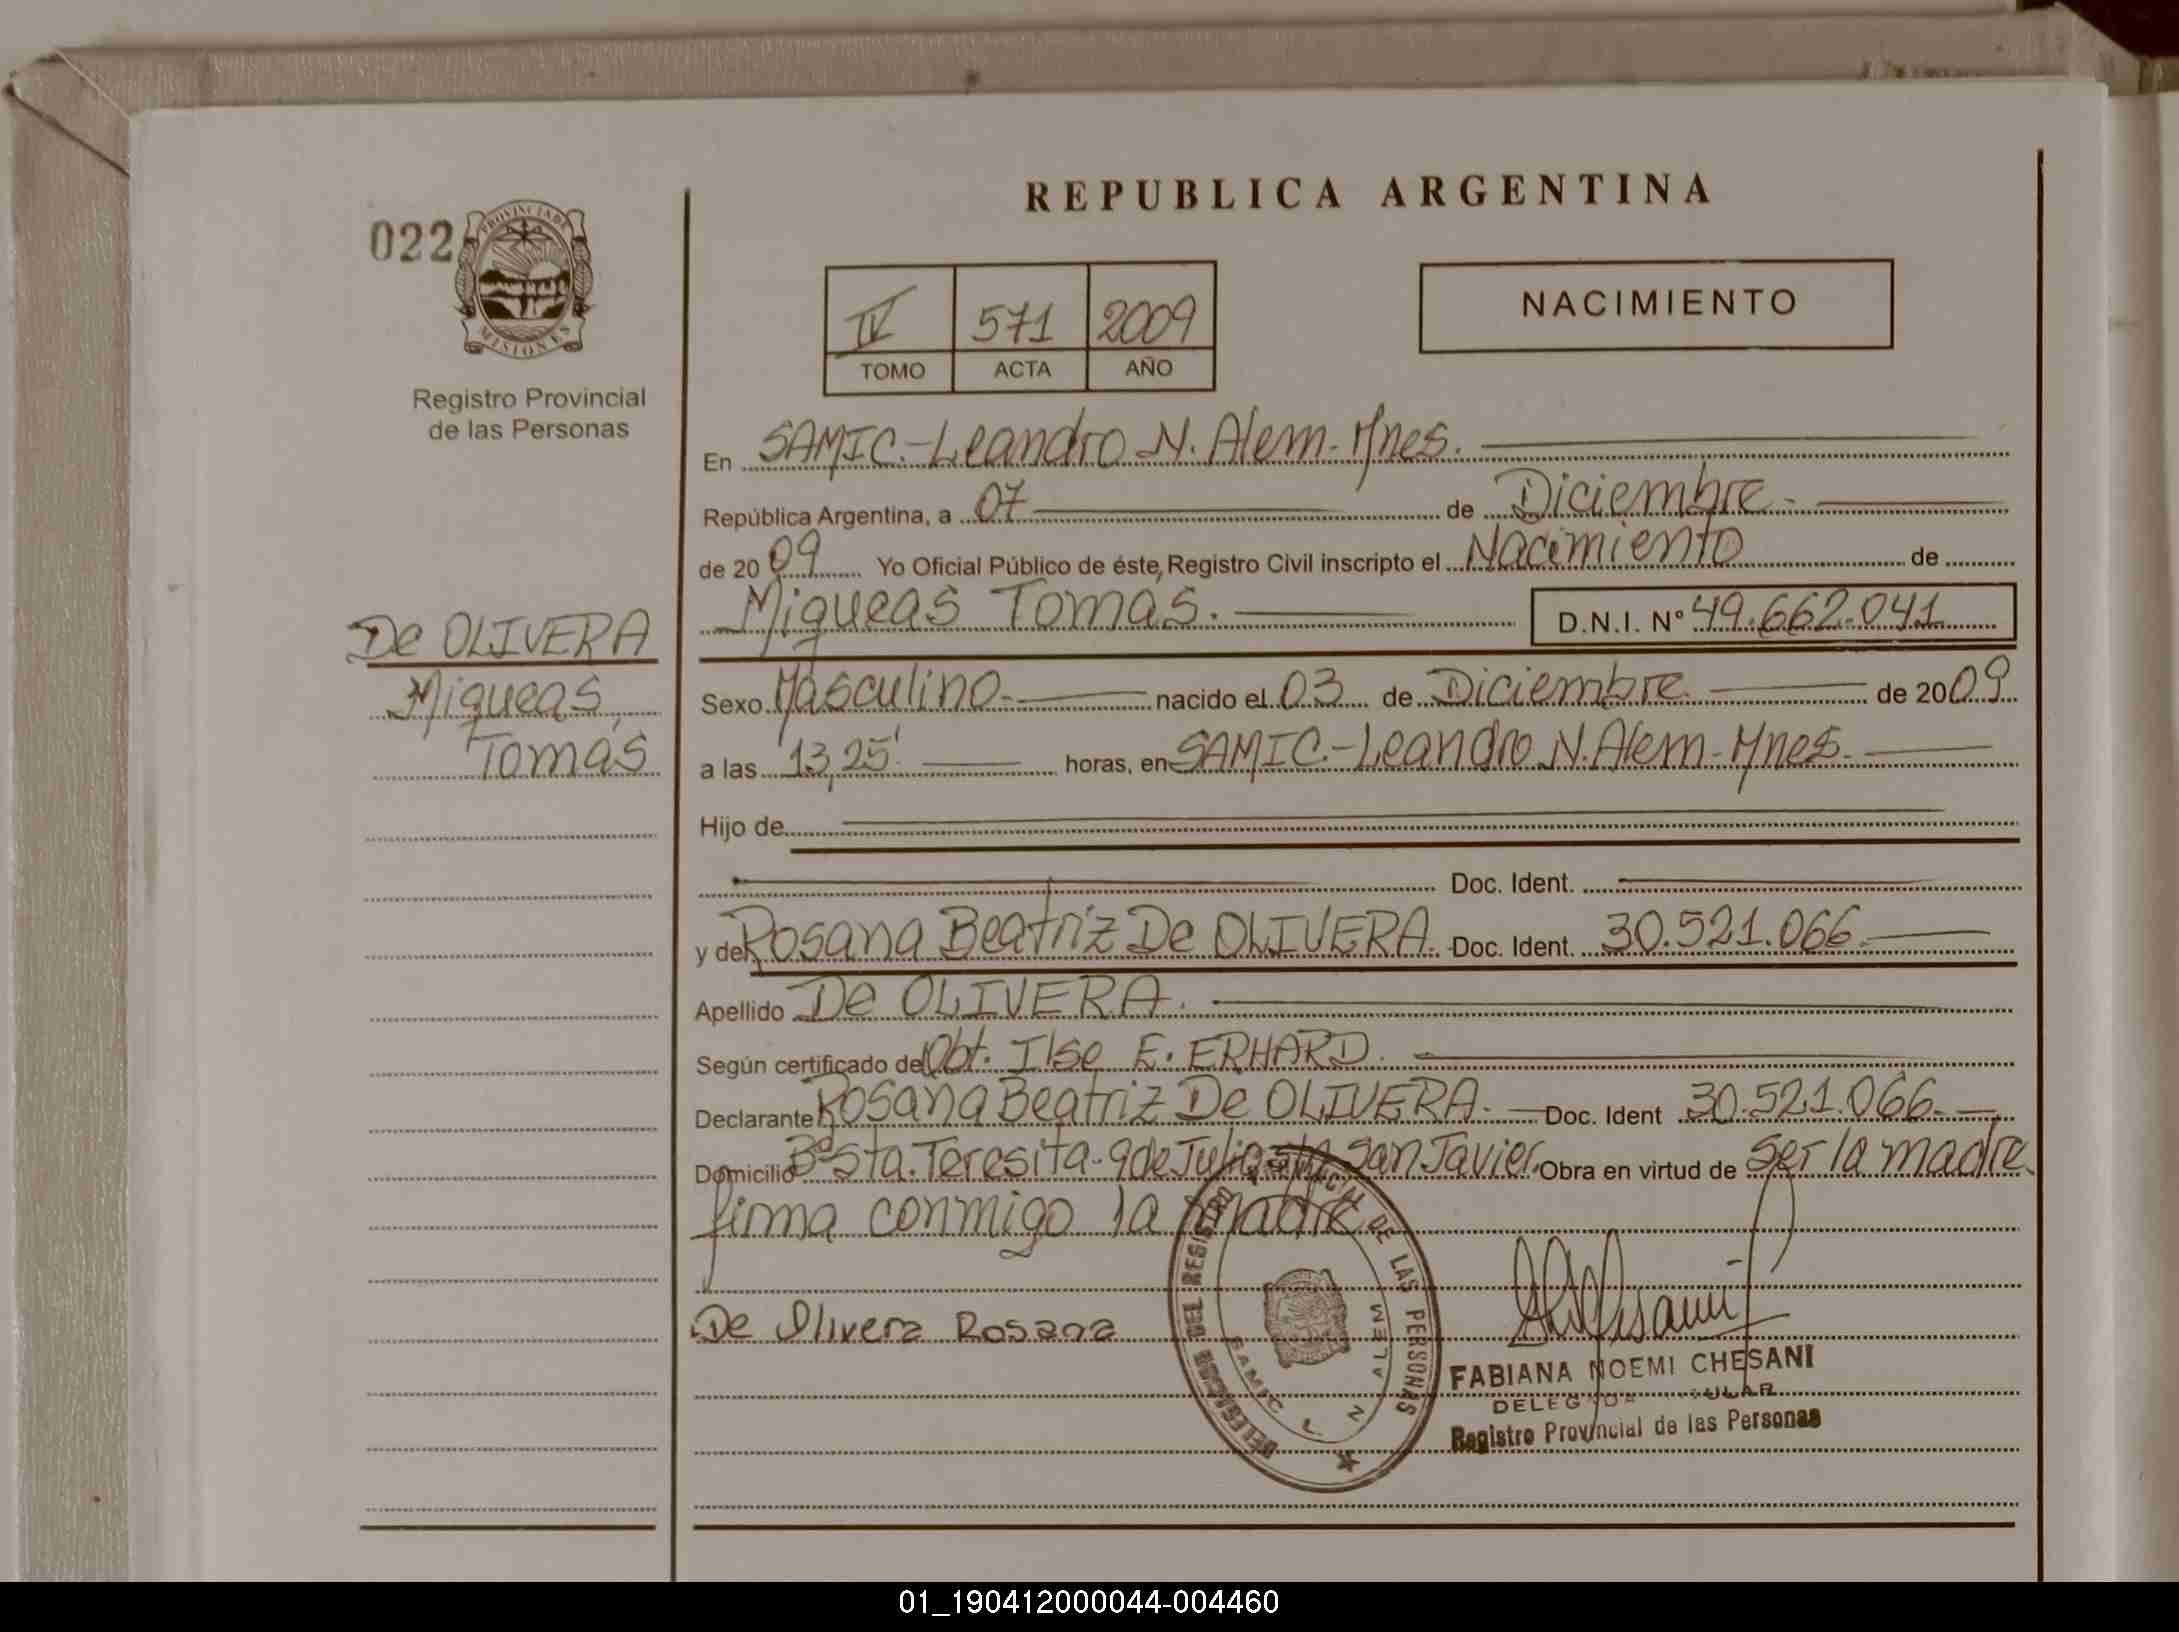 REPUBLICA ARGENTINA
022
PROVINCIA DE
MISIONES
Registro Provincial
de las Personas
IV 571 2009
TOMO ACTA AÑO
NACIMIENTO
En SAMIC.-Leandro N. Alem-Mnes.
República Argentina, a 07 de Diciembre.
de 2009 Yo Oficial Público de éste, Registro Civil inscripto el Nacimiento de
Miqueas Tomas. D.N.I. Nº 49.662.041
De OLIVERA
Miqueas,
Tomás
Sexo Masculino nacido el 03 de Diciembre de 2009
a las 13,25' horas, en SAMIC.-Leandro N. Alem-Mnes.
Hijo de
Doc. Ident.
y de Rosana Beatriz De OLIVERA. Doc. Ident. 30.521.066.
Apellido De OLIVERA.
Según certificado de Obt. Ilse E. ERHARD.
Declarante Rosana Beatriz De OLIVERA. Doc. Ident 30.521.066.
Domicilio Bº Sta. Teresita-9 de Julio San Javier. Obra en virtud de Ser la madre
firma conmigo la madre
De Olivera Rosana
DELEGACION DEL REGISTRO PROVINCIAL DE LAS PERSONAS
SAMIC L N ALEM
FABIANA NOEMI CHESANI
DELEGADA TITULAR
Registro Provincial de las Personas
01_190412000044-004460